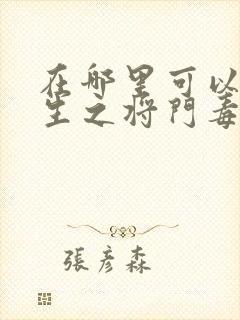 在哪里可以
生之将門毒
張彦森